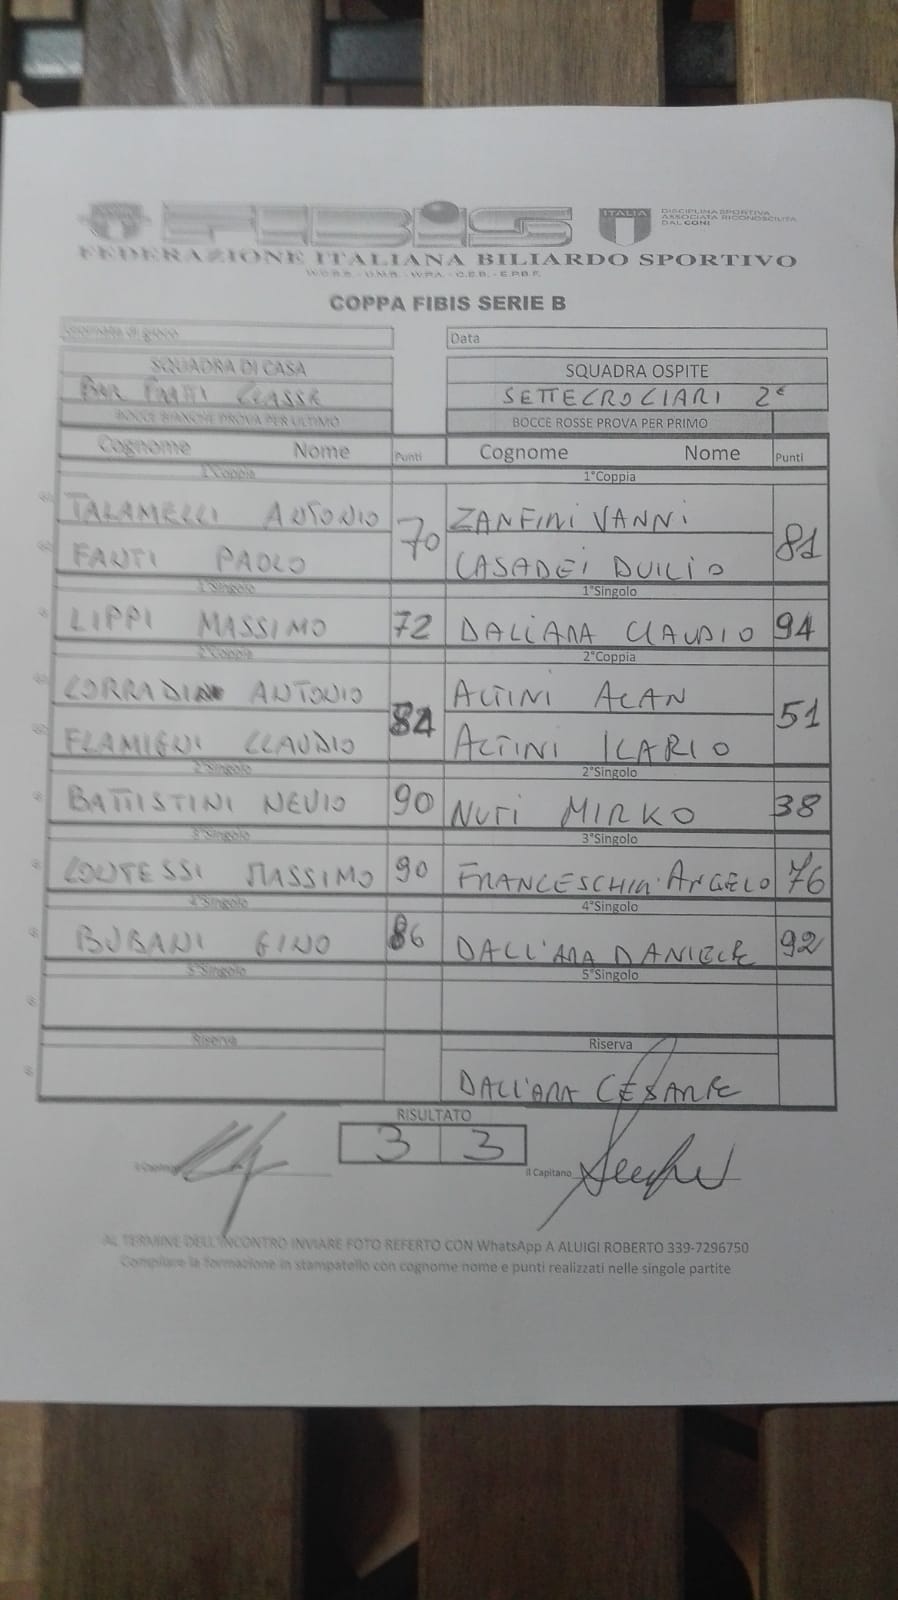 FIBIS
ITALIA
DISCIPLINA SPORTIVA
ASSOCIATA RICONOSCIUTA
DAL CONI
FEDERAZIONE ITALIANA BILIARDO SPORTIVO
W.C.B.S. - U.M.B. - W.P.A. - C.E.B. - E.P.B.F.
COPPA FIBIS SERIE B
Giornata di gioco Data
SQUADRA DI CASA SQUADRA OSPITE
BAR CLASSE SETTECROCIARI 2°
BOCCE BIANCHE PROVA PER ULTIMO BOCCE ROSSE PROVA PER PRIMO
Cognome Nome Punti Cognome Nome Punti
1°Coppia 1°Coppia
TALAMELLI ANTONIO 70 ZANFINI VANNI 81
FANTI PAOLO CASADEI DUILIO
1°Singolo 1°Singolo
LIPPI MASSIMO 72 DALL'ARA CLAUDIO 94
2°Coppia 2°Coppia
CORRADINI ANTONIO 84 ALTINI ALAN 51
FLAMIGNI CLAUDIO ALTINI ILARIO
2°Singolo 2°Singolo
BATTISTINI NEVIO 90 NUTI MIRKO 38
3°Singolo 3°Singolo
CONTESSI MASSIMO 90 FRANCESCHINI ANGELO 76
4°Singolo 4°Singolo
BUBANI GINO 86 DALL'ARA DANIELE 92
5°Singolo 5°Singolo
Riserva Riserva
DALL'ARA CESARE
RISULTATO
3 3
Il Capitano Il Capitano
AL TERMINE DELL'INCONTRO INVIARE FOTO REFERTO CON WhatsApp A ALUIGI ROBERTO 339-7296750
Compilare la formazione in stampatello con cognome nome e punti realizzati nelle singole partite